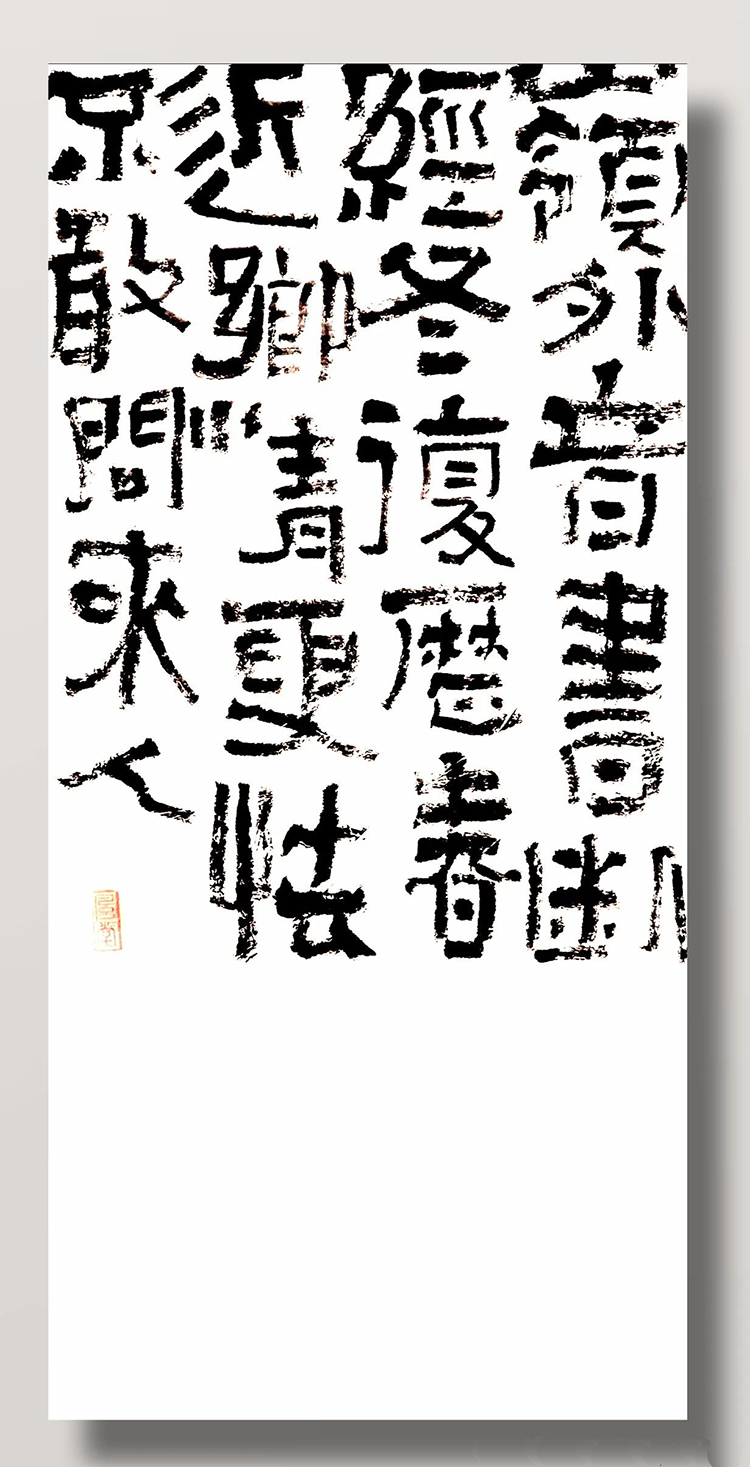 嶺外音書斷
經冬復歷春
近鄉情更怯
不敢問來人